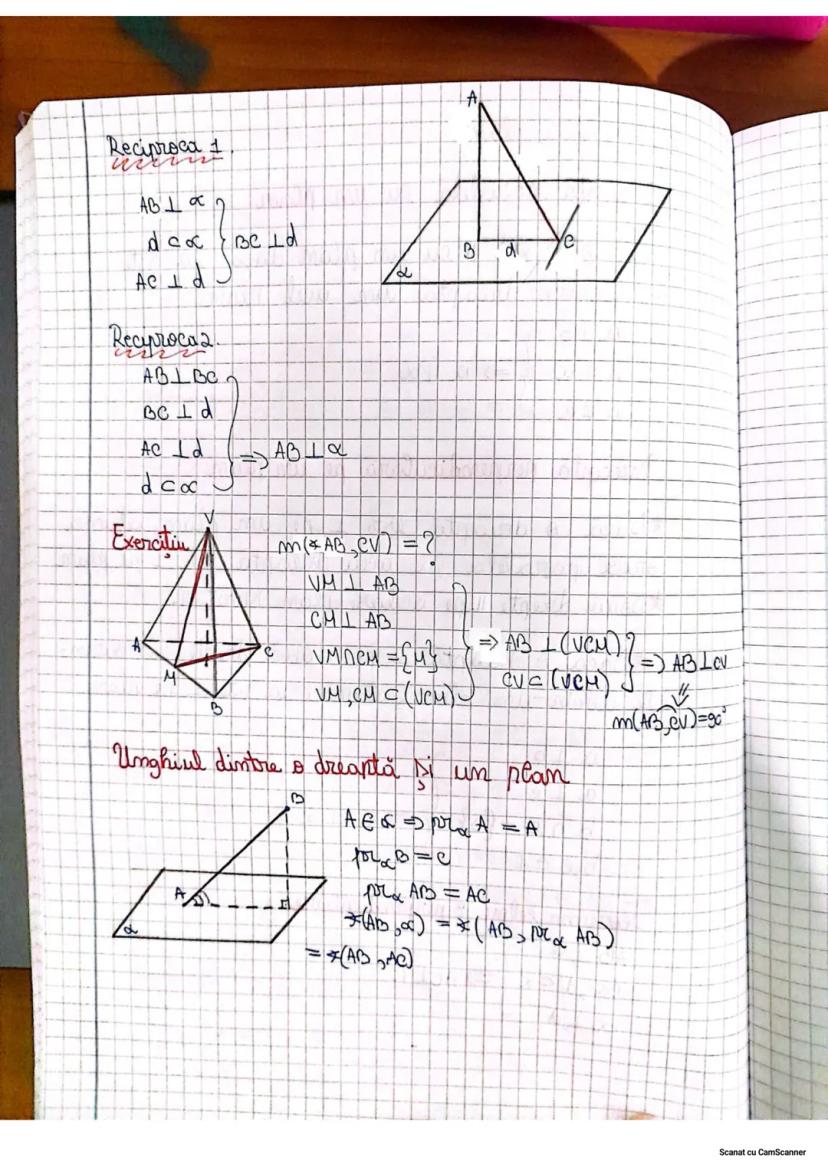 Reciproca 1.
A
AB ⊥ α
d ⊂ α } BC ⊥ d
AC ⊥ d
B d C
α
Reciproca 2.
AB ⊥ BC
BC ⊥ d
AC ⊥ d } => AB ⊥ α
d ⊂ α
V
Exercițiu m(∢AB, CV) = ?
VM ⊥ AB
CM ⊥ AB
A C VM∩CM = {M} } => AB ⊥ (VCM) } => AB ⊥ CV
M VM, CM ⊂ (VCM) CV ⊂ (VCM)
B m(AB, CV) = 90°
Unghiul dintre o dreaptă și un plan
B
A ∈ α => prα A = A
prα B = C
A prα AB = AC
α ∢(AB, α) = ∢(AB, prα AB)
= ∢(AB, AC)
Scanat cu CamScanner